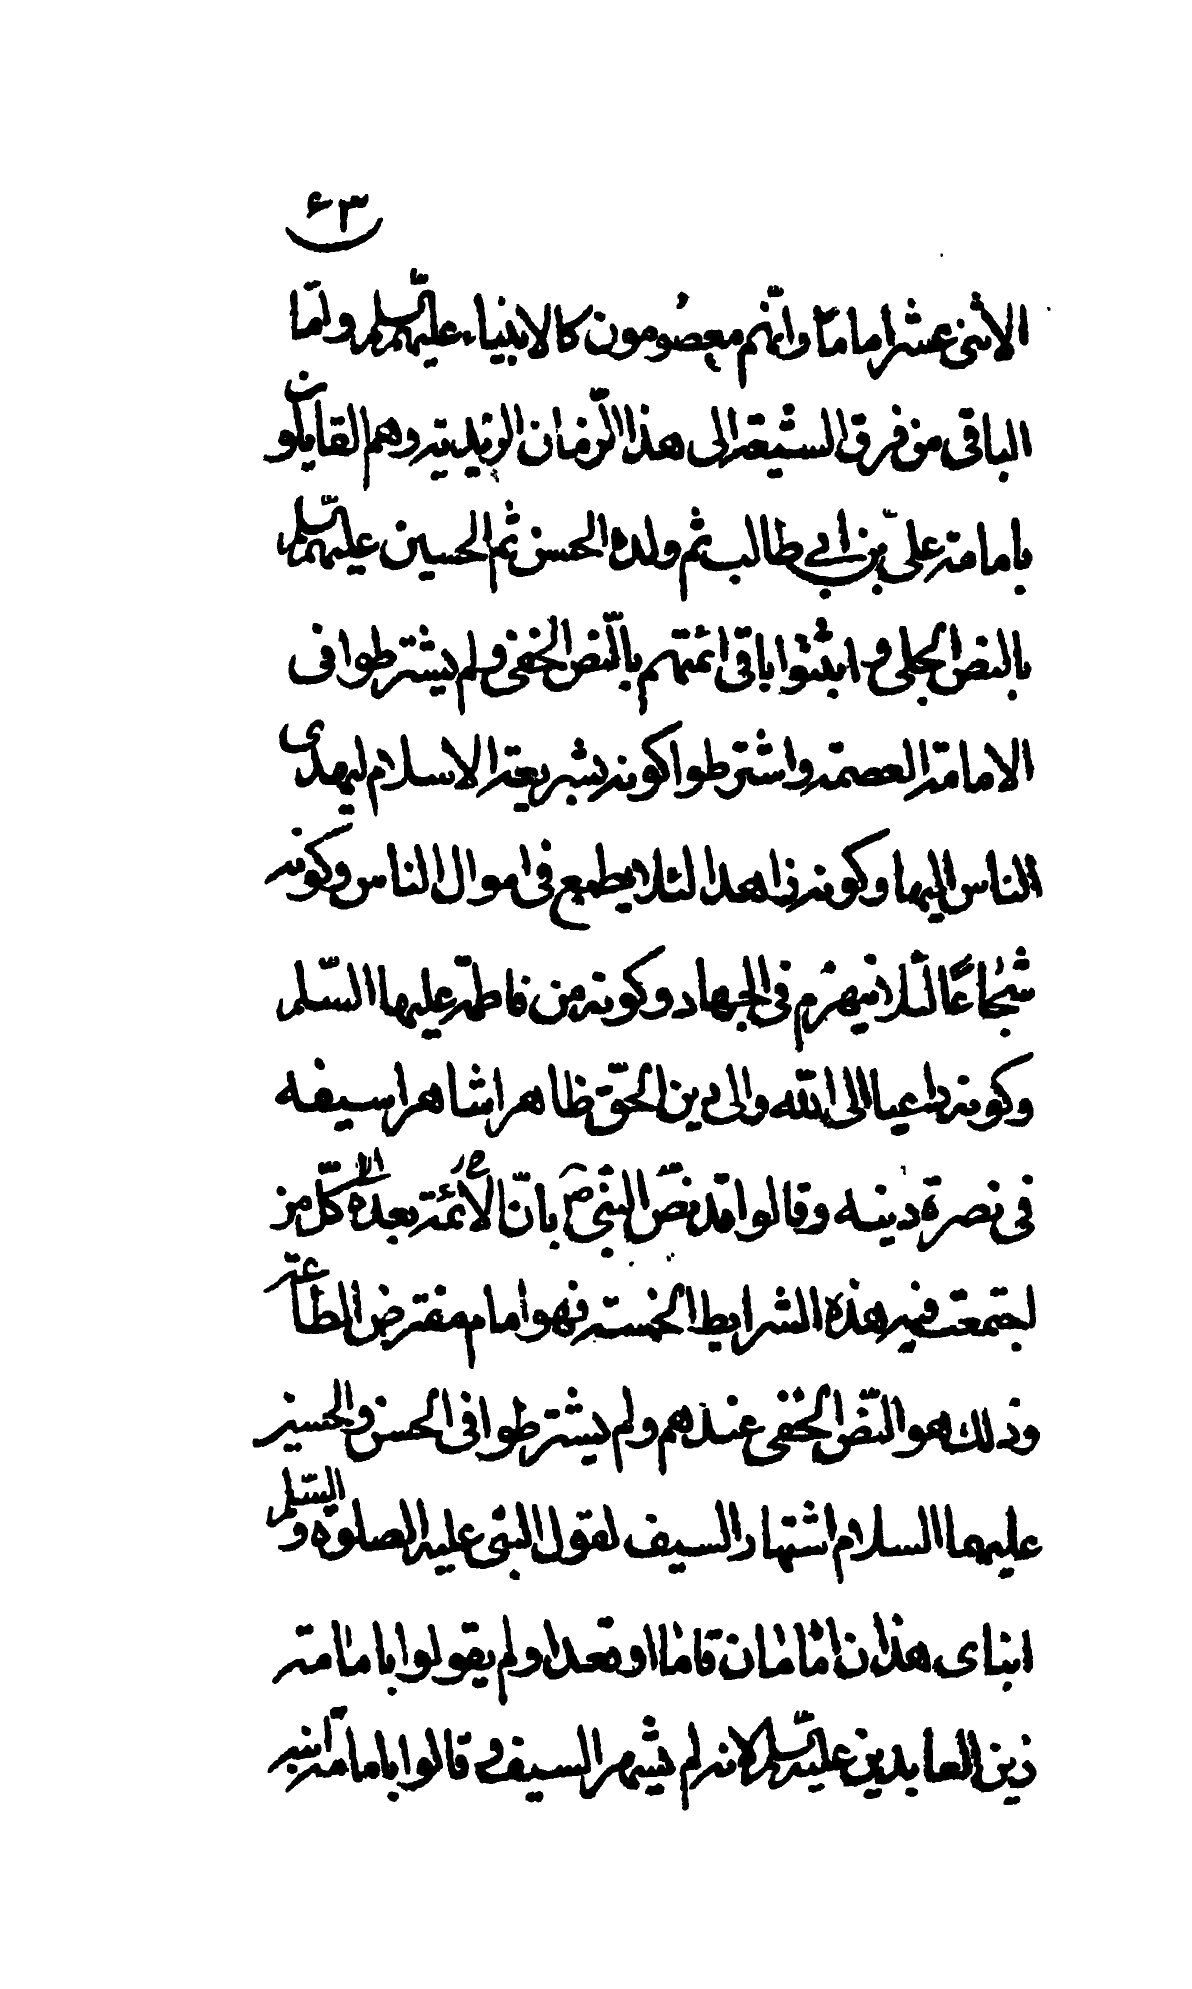 ٤٣
الاثنى عشر اماما وانهم معصومون كالانبياء عليهم السلم ولما
الباقى من فرق الشيعة الى هذا الزمان الزيدية وهم القايلون
بامامة على بن ابي طالب ثم ولده الحسن ثم الحسين عليهم السلم
بالنص الجلى و اثبتوا باقى ائمتهم بالنص الخفى ولم يشترطوا فى
الامامة العصمة واشترطوا كونه بشريعة الاسلام ليهدى
الناس اليها وكونه زاهدا لئلا يطمع فى اموال الناس وكونه
شجاعا لئلا ينهزم فى الجهاد وكونه من فاطمة عليها السلم
وكونه داعيا الى الله والى دين الحق ظاهرا شاهرا سيفه
فى نصرة دينه وقالوا قد نص النبى ص بان الائمة بعده كل من
اجتمعت فيه هذه الشرايط الخمسة فهو امام مفترض الطاعة
وذلك هو النص الخفى عندهم ولم يشترطوا فى الحسن والحسين
عليهما السلام اشتهار السيف لقول النبى عليه الصلوة والسلم
ابناى هذان امامان قاما او قعدا ولم يقولوا بامامة
زين العابدين عليه السلم لانه لم يشهر السيف وقالوا بامامة ابنه